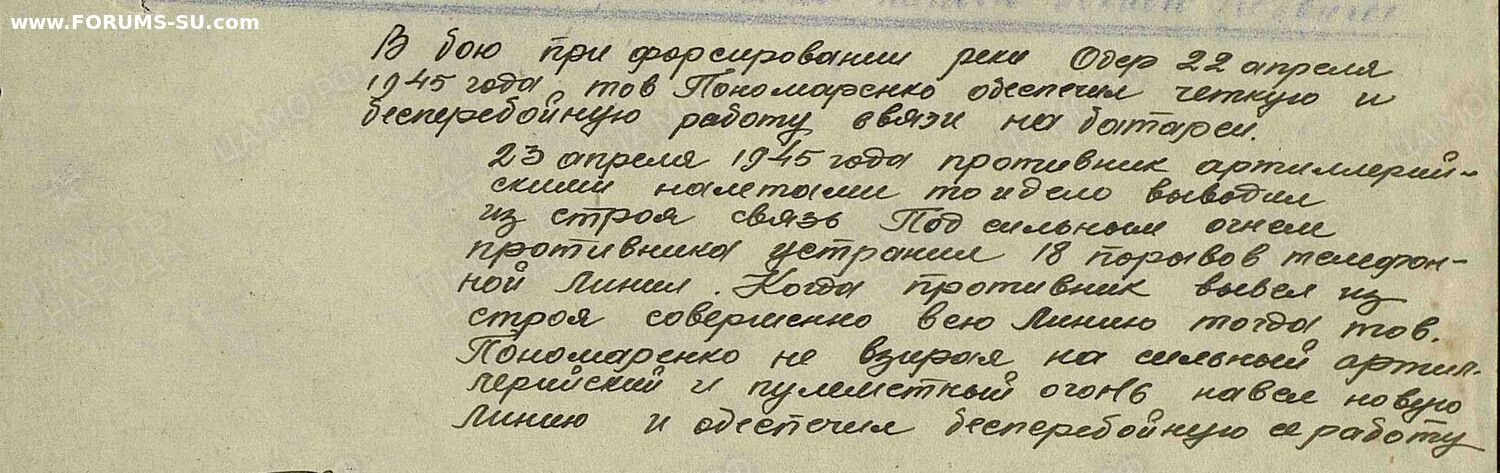 www.FORUMS-SU.com
В бою при форсировании реки Одер 22 апреля
1945 года, тов Пономаренко обеспечил четкую и
бесперебойную работу связи на батареи.
23 апреля 1945 года противник артиллерий-
скими налетами то и дело выводил
из строя связь Под сильным огнем
противника устранил 18 порывов телефон-
ной линии. Когда противник вывел из
строя совершенно всю линию тогда тов.
Пономаренко не взирая на сильный артил-
лерийский и пулеметный огонь навел новую
линию и обеспечил бесперебойную ее работу